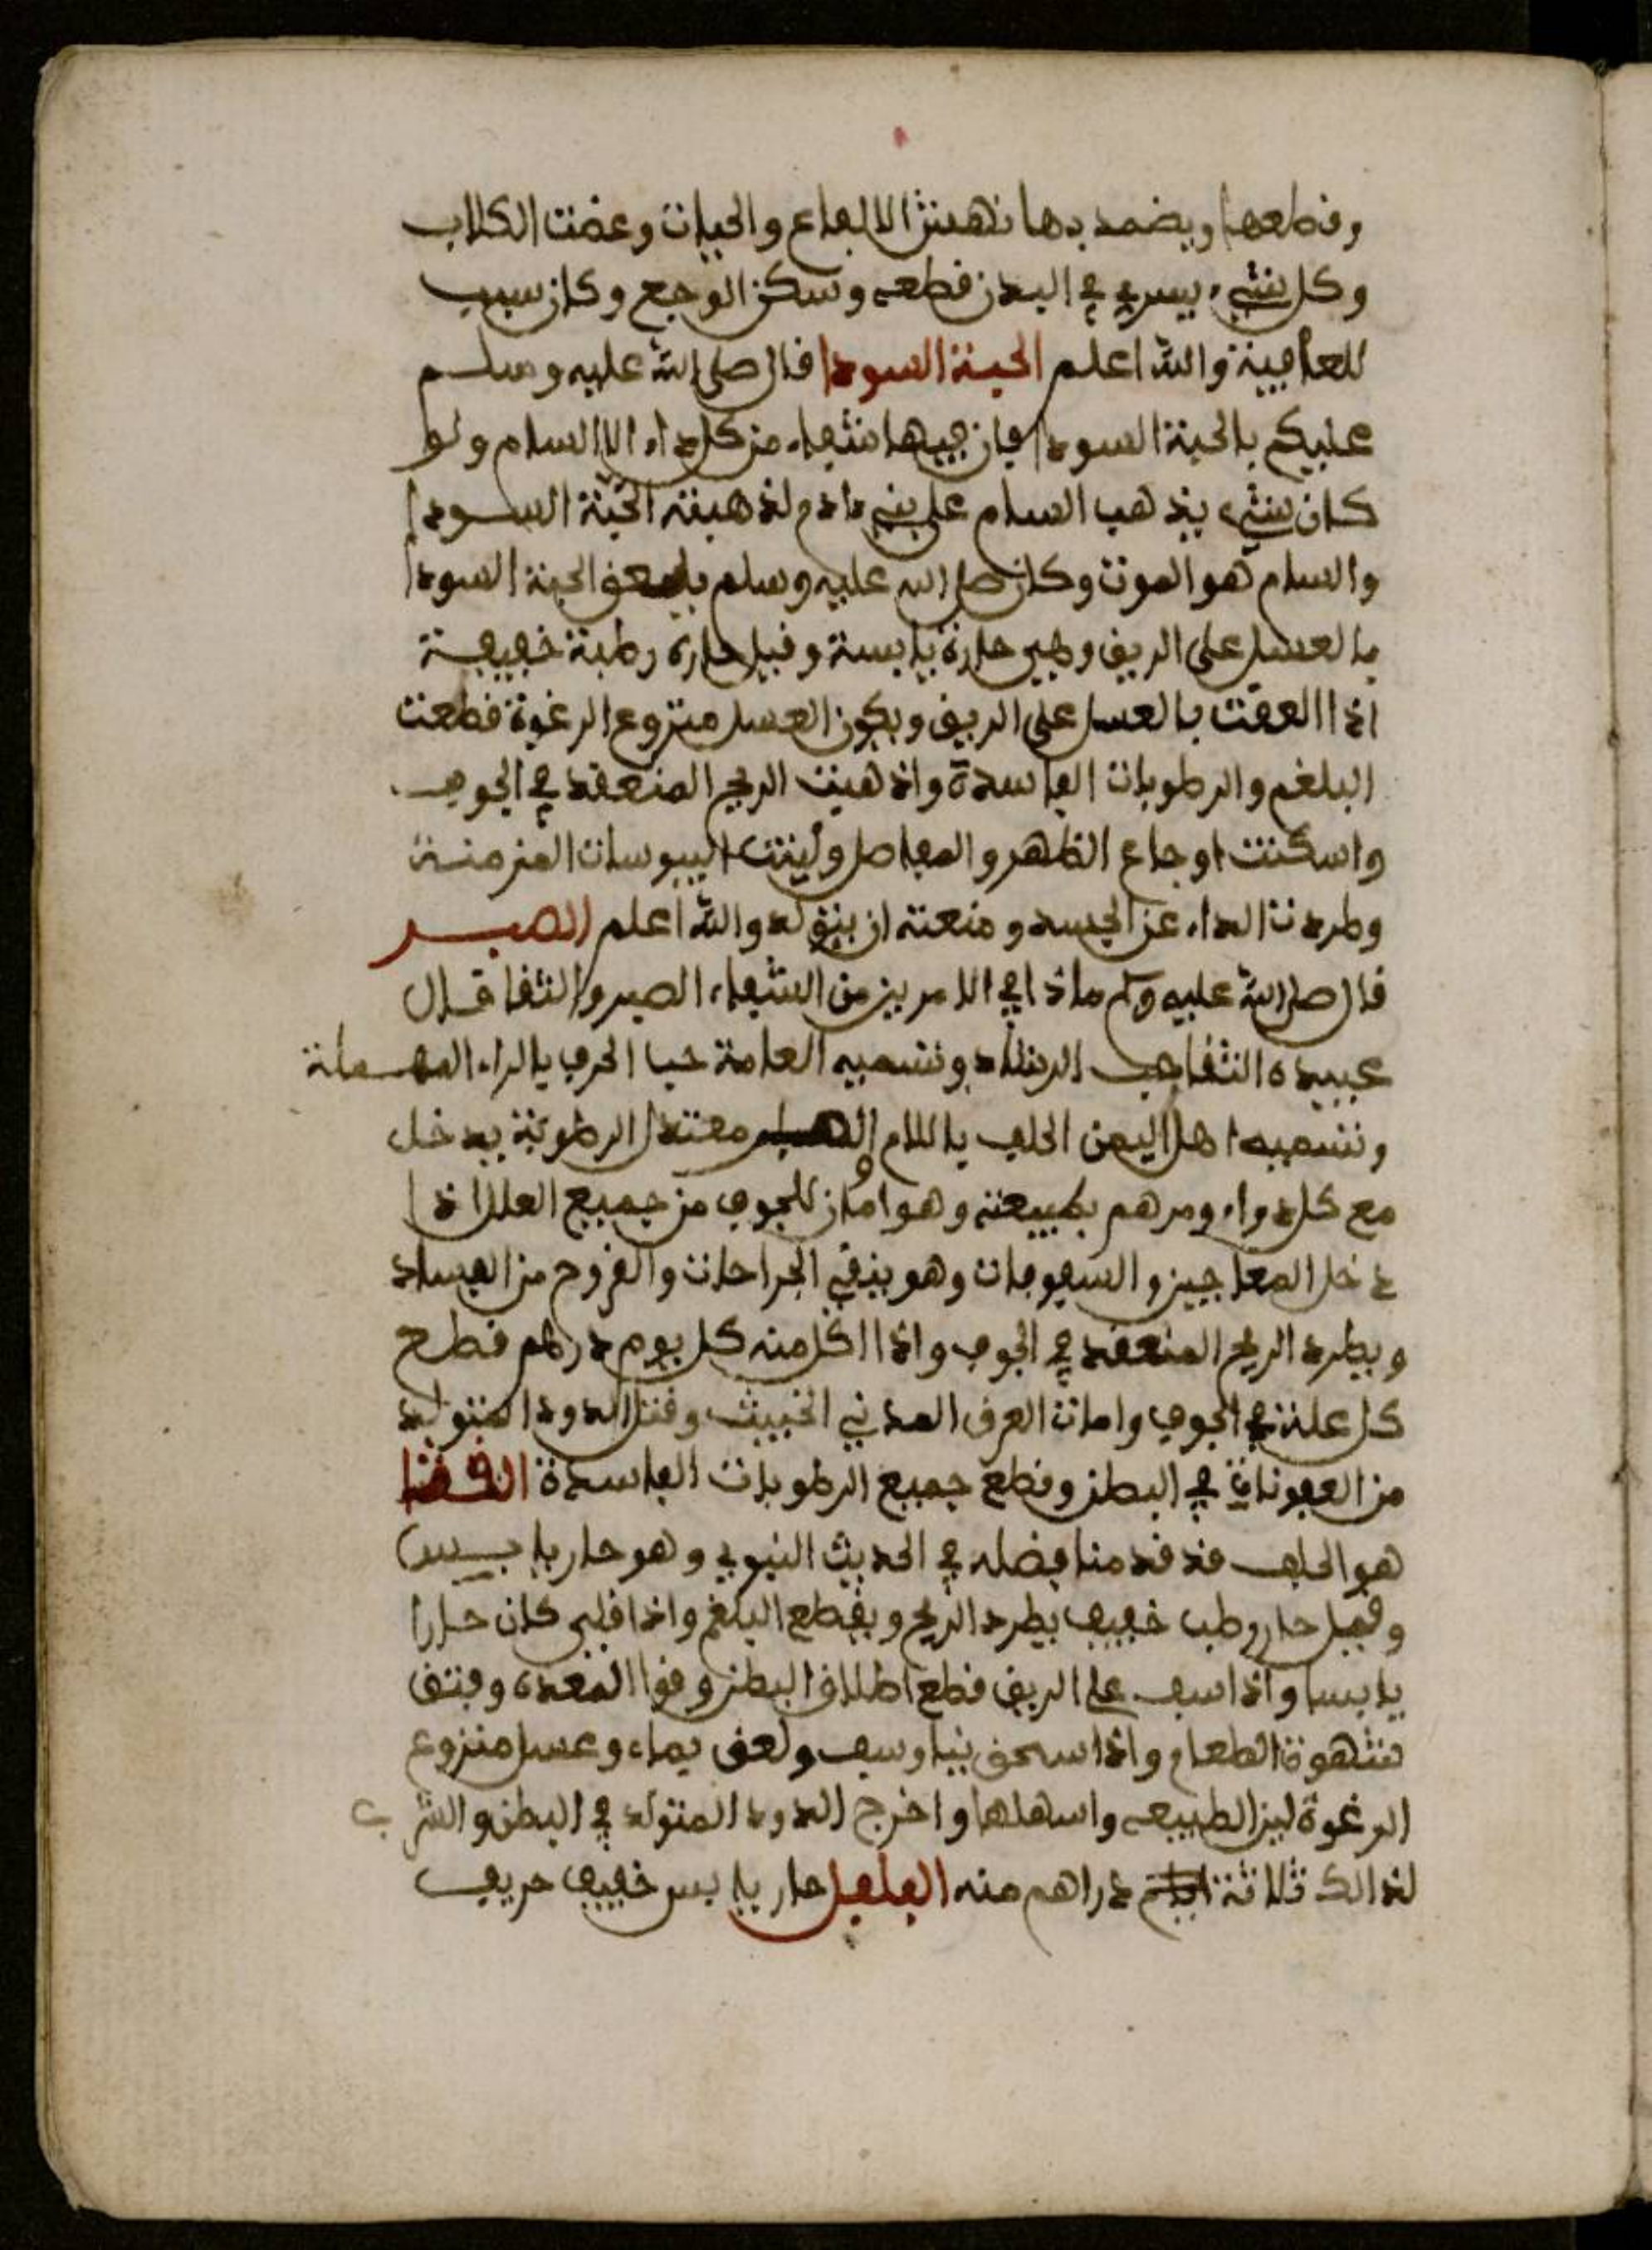 وقطعها ويضمد بها نهش الافاع والحيات وعضت الكلاب
وكل شيء يسري في البدن قطعه وسكن الوجع وكان سبب
للعافية والله اعلم الحبة السودا قال صلى الله عليه وسلم
عليكم بالحبة السودا فان فيها شفاء من كل داء الا السام ولو
كان شيء يذهب السام على بني ءادم لذهبته الحبة السودا
والسام هو الموت وكان صلى الله عليه وسلم يلعق الحبة السودا
بالعسل على الريق وهي حارة يابسة وقيل حاره رطبة خفيفة
اذا العقت بالعسل على الريق ويكون العسل منزوع الرغوة قطعت
البلغم والرطوبات الفاسدة واذهبت الريح المنعقد في الجوف
واسكنت اوجاع الظهر والمفاصل ولينت اليبوسات المزمنة
وطردت الداء عن الجسد ومنعته ان يتولد والله اعلم الصبر
قال صلى الله عليه وسلم ماذا في الامرين من الشفاء الصبر والثفا قال
عبيده الثفا حب الرشاد وتسميه العامة حبا الحرف بالراء المهملة
وتسميه اهل اليمن الحلف باللام الصبر معتدل الرطوبة يدخل
مع كل دواء ومرهم بطبيعته وهو امان للجوف من جميع العلل اذا
دخل المعاجين والسفوفات وهو ينقي الجراحات والقروح من الفساد
ويطرد الريح المنعقد في الجوف واذا اكل منه كل يوم درهم قطع
كل علة في الجوف وامات العرق المدني الخبيث وقتل الدود المتولد
من العفونات في البطن وقطع جميع الرطوبات الفاسدة الثفا
هو الحلف قد قدمنا فضله في الحديث النبوي وهو حار يابس
وقيل حار رطب خفيف يطرد الريح ويقطع البلغم واذا قلي كان حارا
يابسا واذا سف على الريق قطع اطلاق البطن وقوا المعده وفتق
شهوة الطعام واذا اسحق نيا وسف ولعق بماء وعسل منزوع
الرغوة لين الطبيعه واسهلها واخرج الدود المتولد في البطن والشرب
لذالك ثلاثة دراهم منه الفلفل حار يابس خفيف حريف